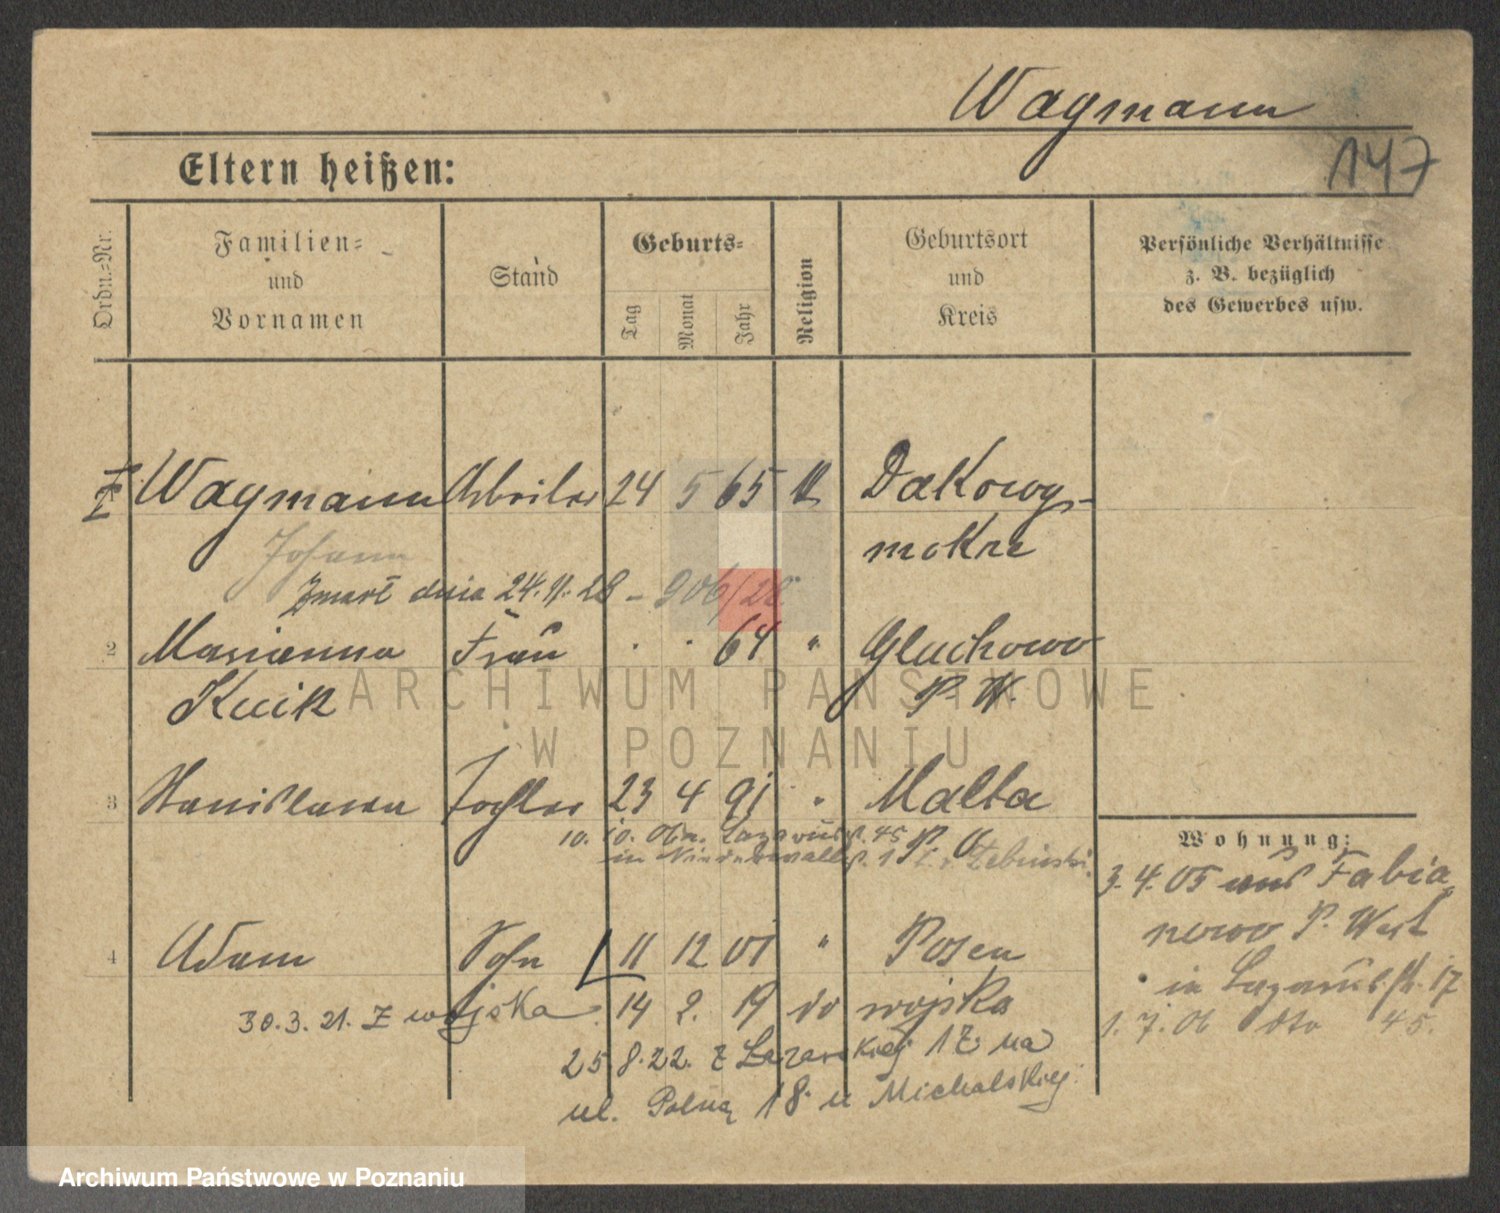 Wagmann
147
Eltern heißen:
Ordn.=Nr.
Familien=
und
Vornamen
Stand
Geburts=
Tag
Monat
Jahr
Religion
Geburtsort
und
Kreis
Persönliche Verhältnisse
z. B. bezüglich
des Gewerbes usw.
Wagmann Arbeiter 24 5 65 K Dakowy-
Johann mokre
Zmarł dnia 24.11.28 - 906/28
2 Marianna Frau . . 64 " Gluchowo
Kuik P. W.
3 Stanislawa Tochter 23 4 91 " Malta
10. 10. 45 P. O.
Wohnung:
3. 4. 05 aus Fabia
nowo P. West
in Lazarusstr. 17
1. 7. 06 dto 45.
4 Adam Sohn 11 12 01 " Posen
30.3.21. Z wojska 14 2. 19 do wojska
25.8.22. z Lazarskiej 17 na
ul. Polną 18 u Michalskiej
ARCHIWUM PAŃSTWOWE
W POZNANIU
Archiwum Państwowe w Poznaniu